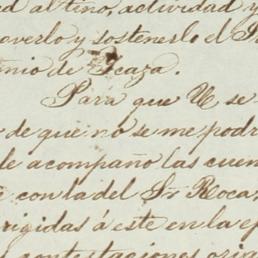 al tino, actividad y
overlo y sostenerlo el
nio de Icaza.
Para que U. se
de que no se me podr
le acompaño las cuen
con la del Sr. Roca
rigidas á este en la ep
contestaciones orig